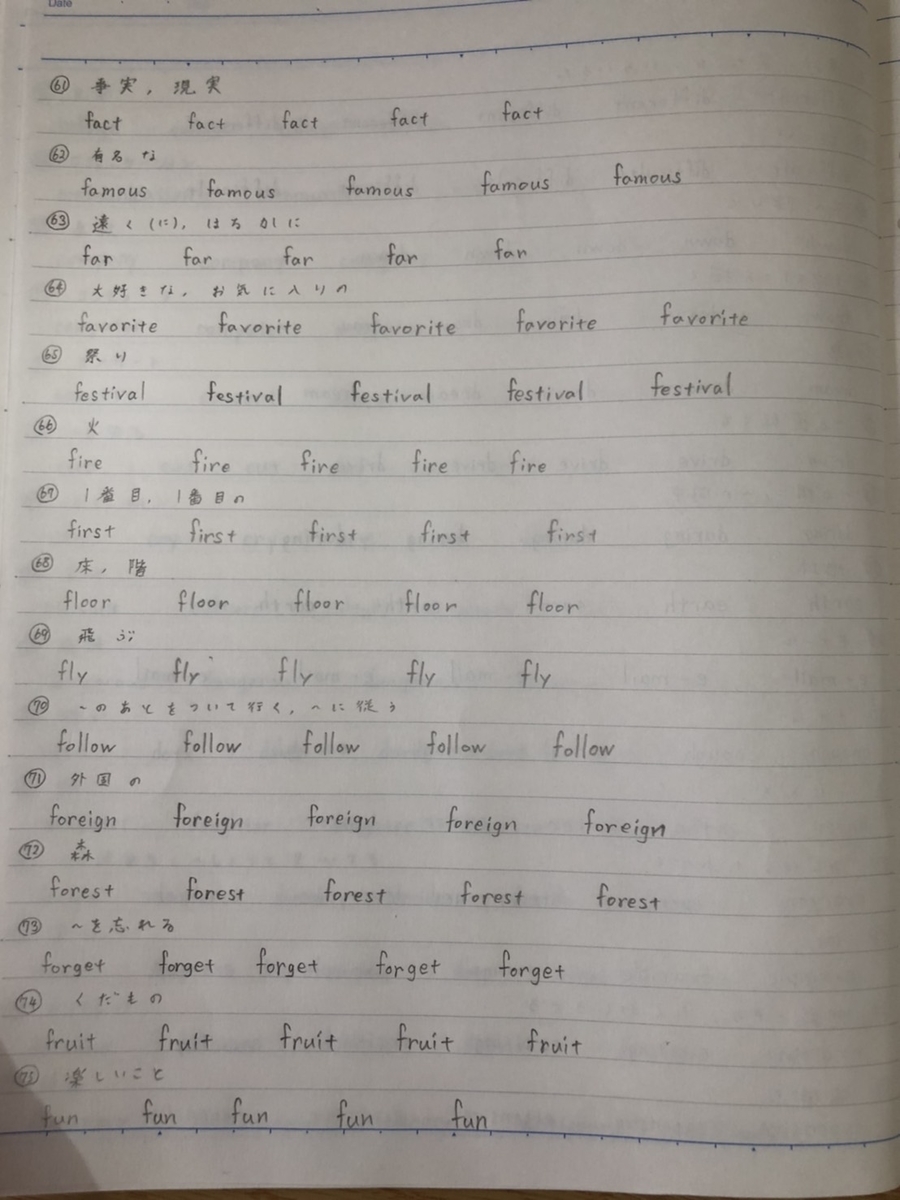 Date
61 事実, 現実
fact fact fact fact fact
62 有名な
famous famous famous famous famous
63 遠く(に), はるかに
far far far far far
64 大好きな, お気に入りの
favorite favorite favorite favorite favorite
65 祭り
festival festival festival festival festival
66 火
fire fire fire fire fire
67 1番目, 1番目の
first first first first first
68 床, 階
floor floor floor floor floor
69 飛ぶ
fly fly fly fly fly
70 〜のあとをついて行く, 〜に従う
follow follow follow follow follow
71 外国の
foreign foreign foreign foreign foreign
72 森
forest forest forest forest forest
73 〜を忘れる
forget forget forget forget forget
74 くだもの
fruit fruit fruit fruit fruit
75 楽しいこと
fun fun fun fun fun